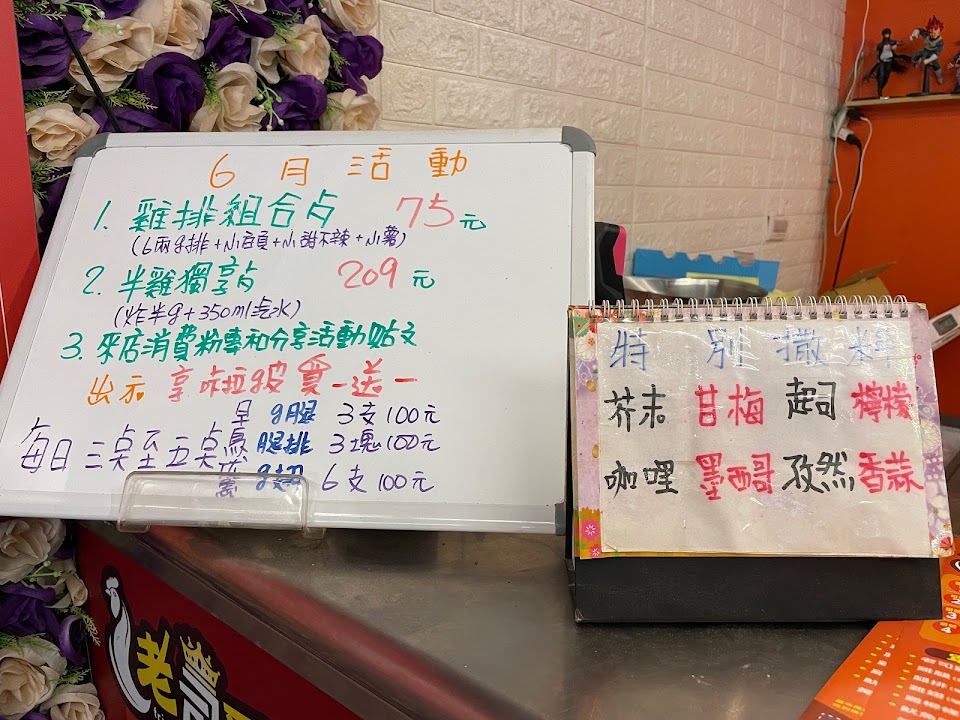 6月活動
1. 雞排組合点 75元
(6兩g排+小百頁+小甜不辣+小薯)
2. 半雞獨享点 209元
(炸半g+350ml汽水)
3. 來店消費粉專和分享活動貼文
出示 享啦拉波買一送一
每日三桌至五桌
早 g腿 3支100元
鳥 腿排 3塊100元
g翅 6支100元
特別撒料
芥末 甘梅 起司 檸檬
咖哩 墨西哥 孜然 香蒜
老